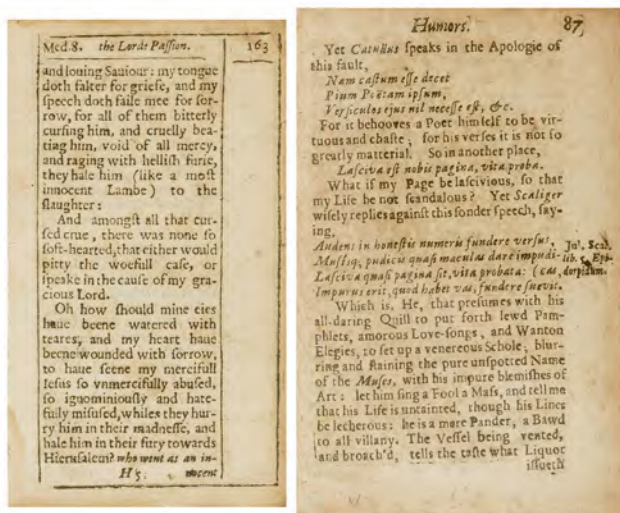 Med. 8. the Lords Passion. 163
and louing Sauiour: my tongue
doth falter for griefe, and my
speech doth faile mee for sor-
row, for all of them bitterly
cursing him, and cruelly bea-
ting him, void of all mercy,
and raging with hellish furie,
they hale him (like a most
innocent Lambe) to the
slaughter:
And amongst all that cur-
sed crue, there was none so
soft-hearted, that either would
pitty the woefull case, or
speake in the cause of my gra-
cious Lord.
Oh how should mine eies
haue beene watered with
teares, and my heart haue
beene wounded with sorrow,
to haue seene my mercifull
Iesus so vnmercifully abused,
so ignominiously and hate-
fully misused, whiles they hur-
ry him in their madnesse, and
hale him in their fury towards
Hierusalem? who went as an in-
H 5. nocent
Humors. 87
Yet Catullus speaks in the Apologie of
this fault,
Nam castum esse decet
Pium Poëtam ipsum,
Versiculos ejus nil necesse est, &c.
For it behooves a Poet himself to be vir-
tuous and chaste; for his verses it is not so
greatly matterial. So in another place,
Lasciva est nobis pagina, vita proba.
What if my Page be lascivious, so that
my Life be not scandalous? Yet Scaliger
wisely replies against this fonder speech, say-
ing,
Audens in honestis numeris fundere versus,
Musisq; pudicis quasi maculas dare impudi-
Lasciva quasi pagina sit, vita probata: (cas,
Impurus erit, quod habet vas, fundere suevit.
Jul. Scal.
lib. Epi-
dorpidum.
Which is, He, that presumes with his
all-daring Quill to put forth lewd Pam-
phlets, amorous Love-songs, and Wanton
Elegies, to set up a venereous Schole, blur-
ring and staining the pure unspotted Name
of the Muses, with his impure blemishes of
Art: let him sing a Fool a Mass, and tell me
that his Life is untainted, though his Lines
be lecherous: he is a mere Pander, a Bawd
to all villany. The Vessel being vented,
and broach'd, tells the taste what Liquor
issueth